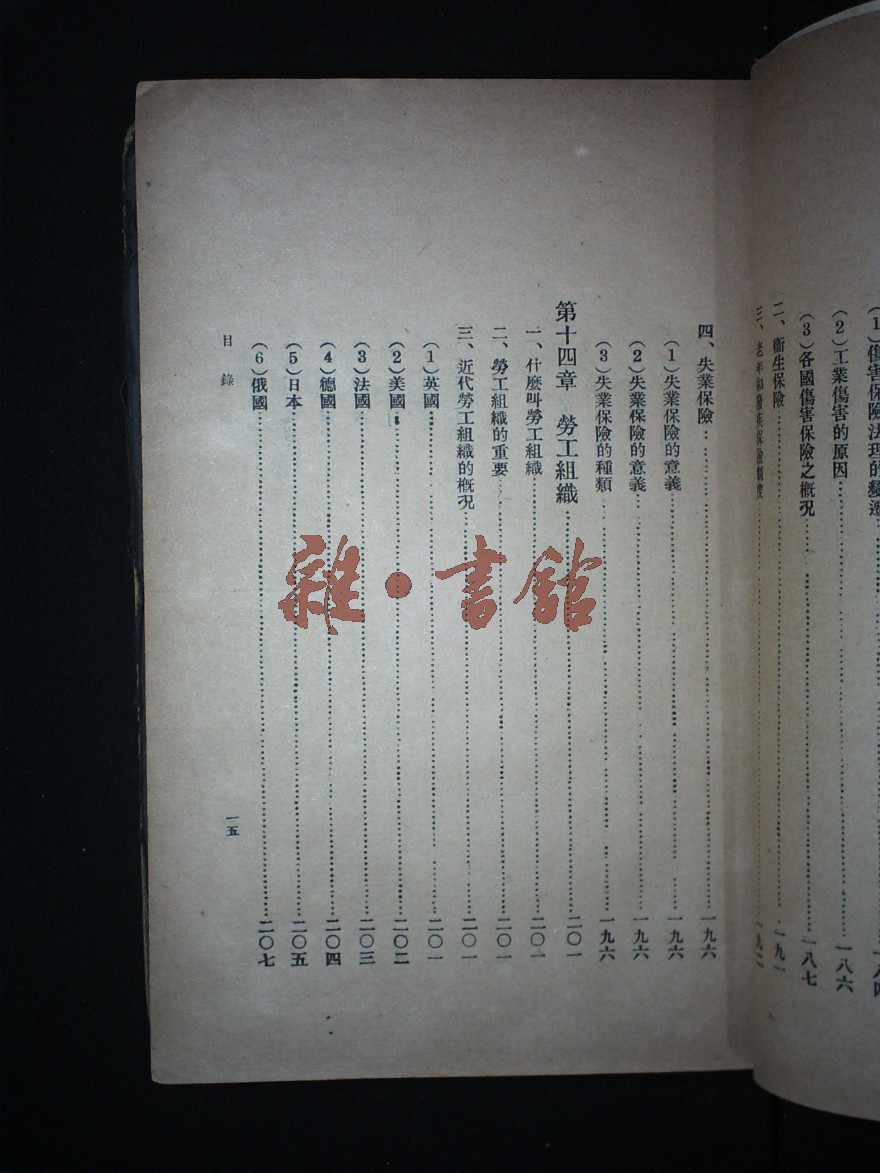 (1)傷害保險法理的變遷……一八四
(2)工業傷害的原因……一八六
(3)各國傷害保險之概況……一八七
二、衞生保險……一九一
三、老年和廢疾保險制度……一九二
四、失業保險……一九六
(1)失業保險的意義……一九六
(2)失業保險的意義……一九六
(3)失業保險的種類……一九六
第十四章 勞工組織……二〇一
一、什麽叫勞工組織……二〇一
二、勞工組織的重要……二〇一
三、近代勞工組織的概況……二〇一
(1)英國……二〇一
(2)美國……二〇二
(3)法國……二〇三
(4)德國……二〇四
(5)日本……二〇五
(6)俄國……二〇七
目錄
一五
雜·書館